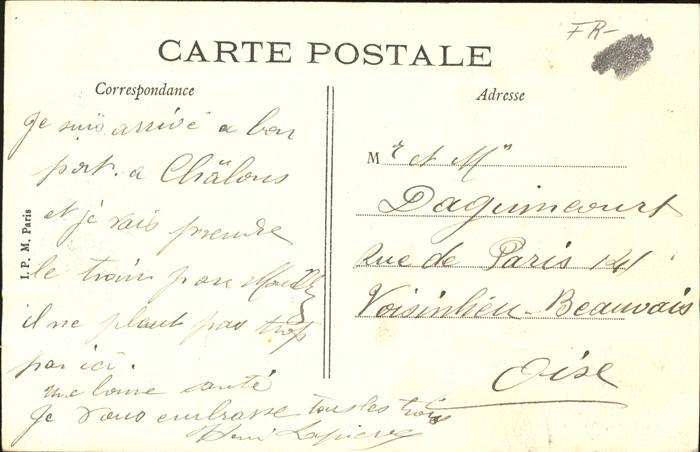 FR-
CARTE POSTALE
Correspondance
Adresse
Je suis arrivé a bon
port. a Châlons
et je vais prendre
le train pour
il ne pleut pas trop
par ici.
une bonne santé
Je vous embrasse tous les trois
Henri Lapierre
I. P. M, Paris
Mr et Mme
Daguincourt
Rue de Paris 141
Voisinlieu-Beauvais
Oise